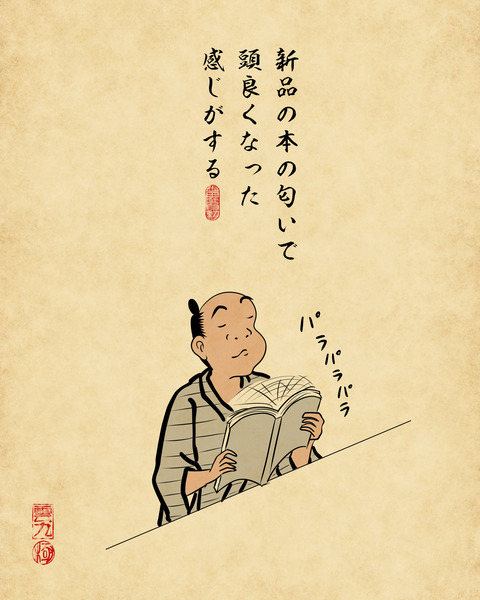 新品の本の匂いで
頭良くなった
感じがする
パラパラパラ